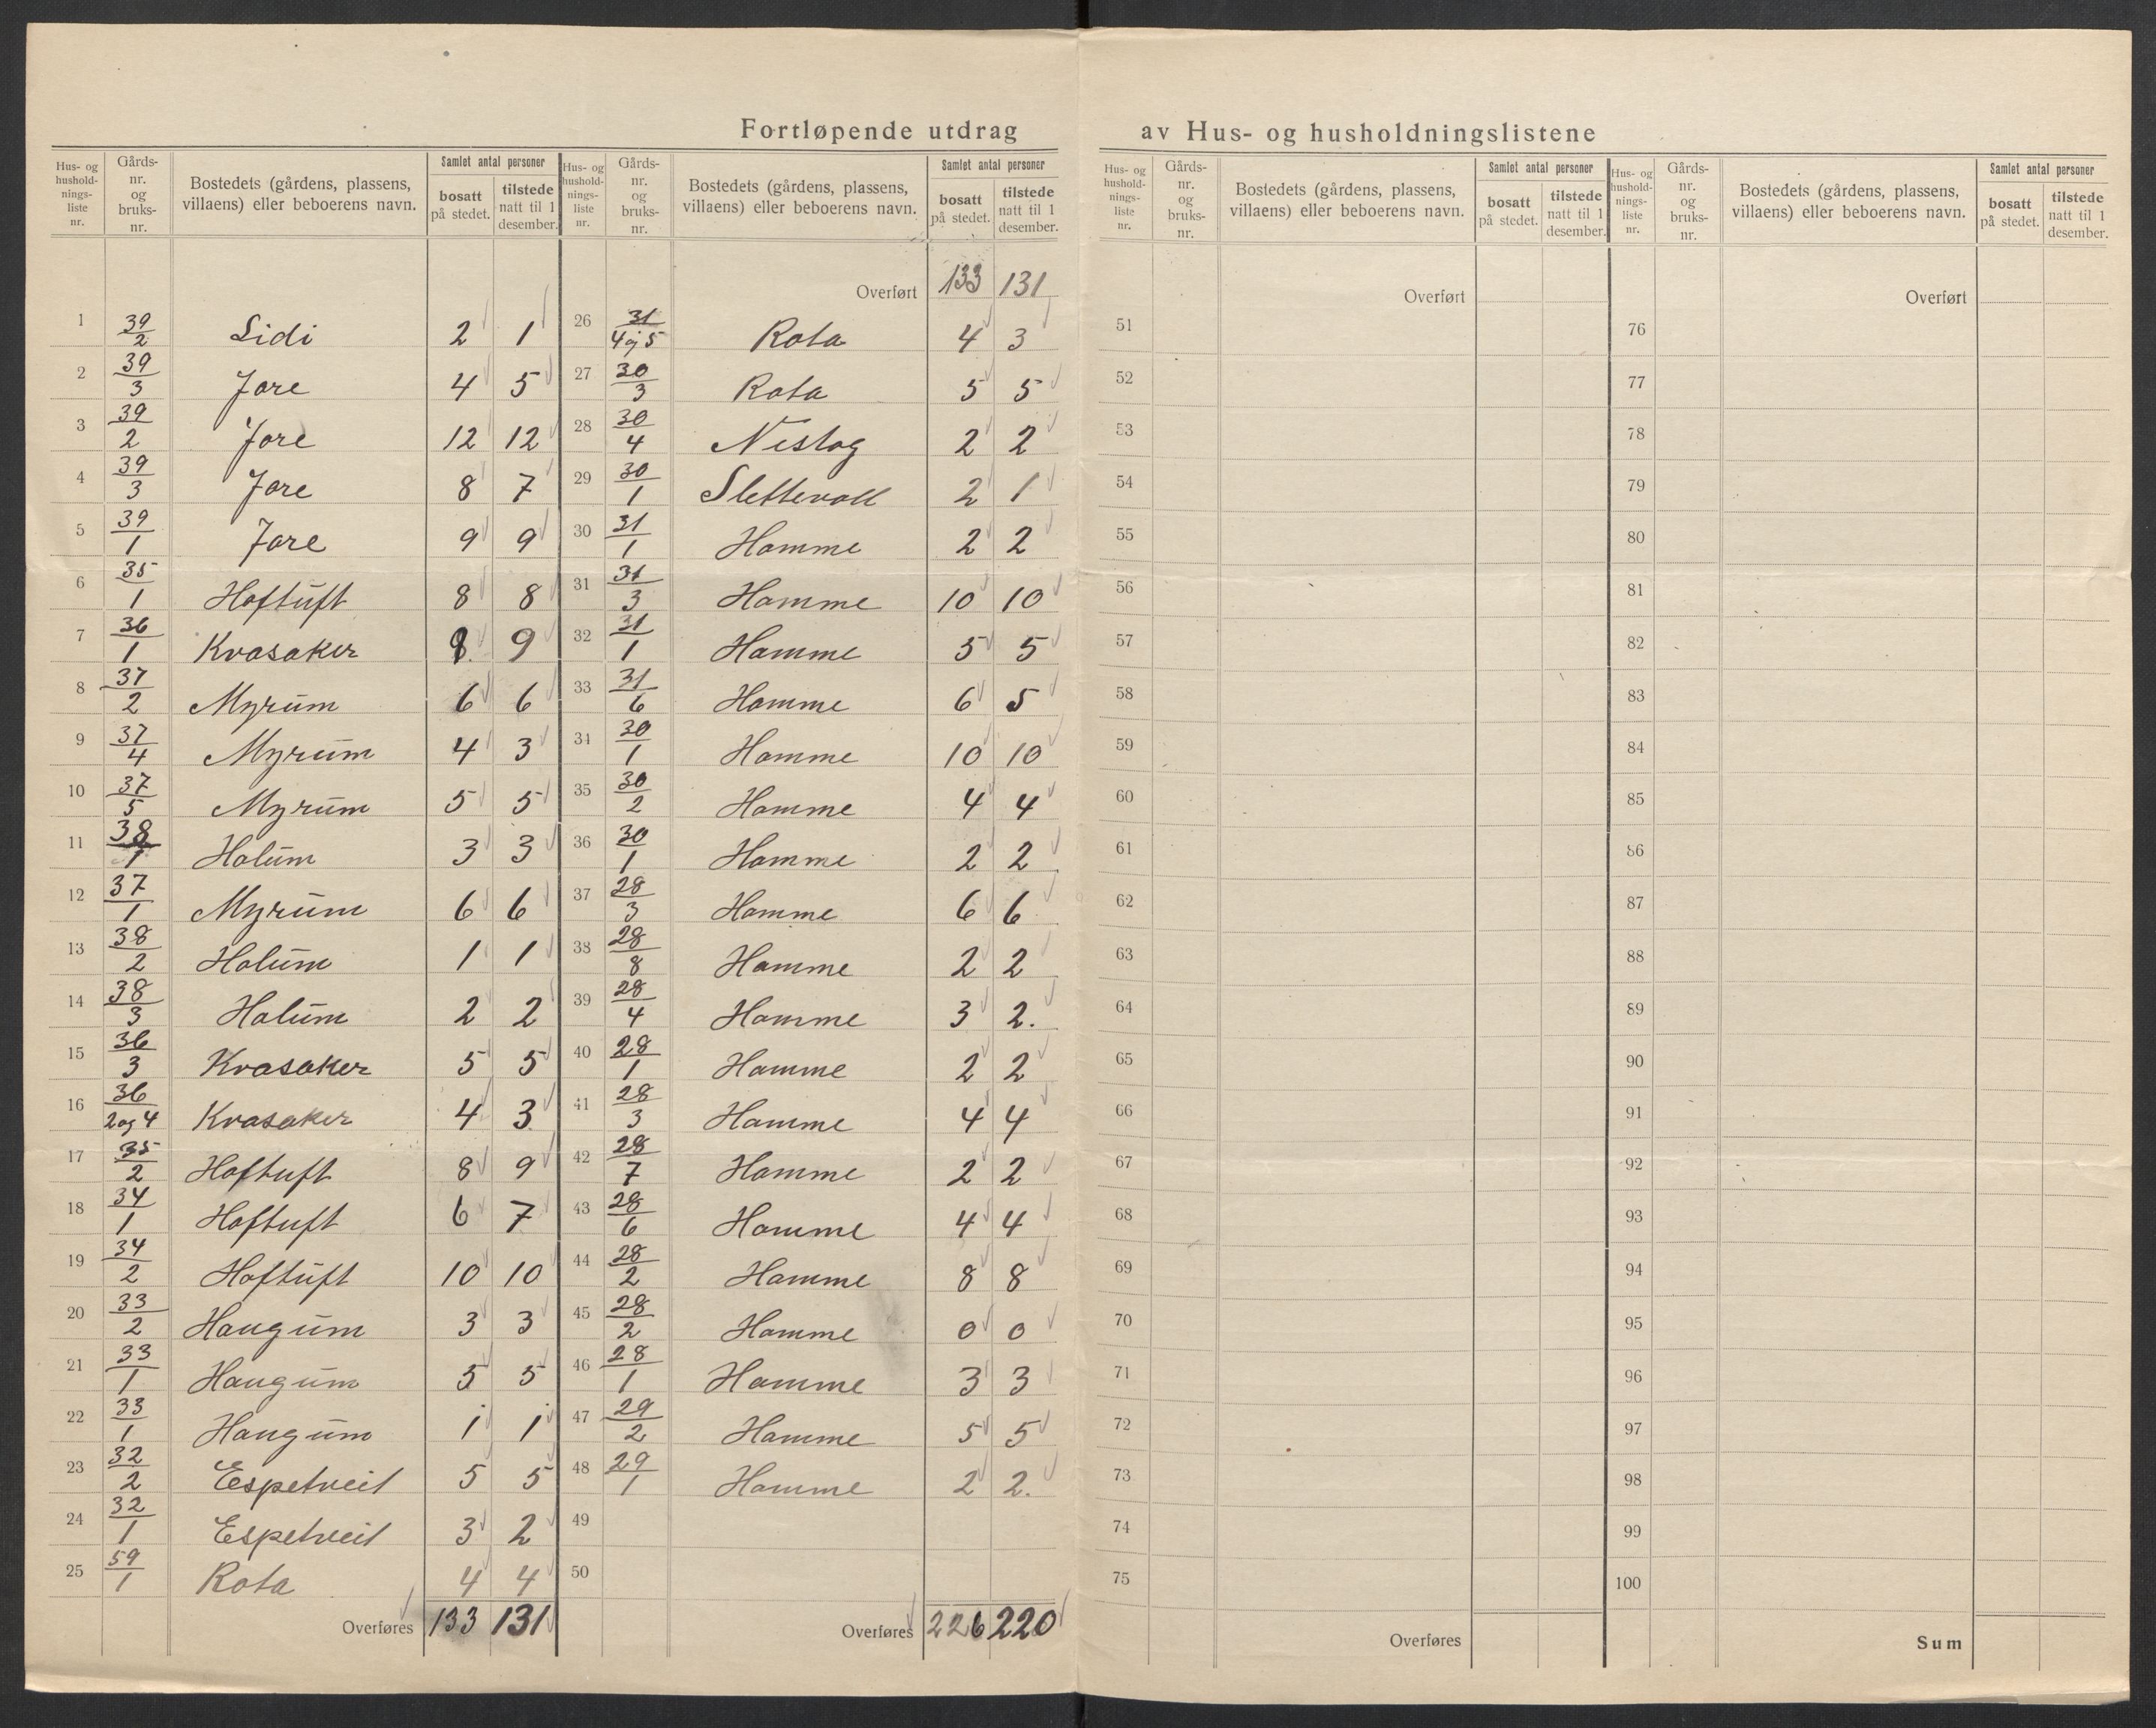 Fortløpende utdrag av Hus- og husholdningslistene
Hus- og hushold-nings-liste nr. | Gårds-nr. og bruks-nr. | Bostedets (gårdens, plassens, villaens) eller beboerens navn. | Samlet antal personer | bosatt på stedet. | tilstede natt til 1 desember.
1 39/2 Lidi 2 1
2 39/3 Jore 4 5
3 39/2 Jore 12 12
4 39/3 Jore 8 7
5 39/1 Jore 9 9
6 35/1 Hoftuft 8 8
7 36/1 Kvasaker 9
8 37/2 Myrum 6 6
9 37/4 Myrum 4 3
10 37/5 Myrum 5 5
11 38/1 Holum 3 3
12 37/1 Myrum 6 6
13 38/2 Holum 1 1
14 38/3 Holum 2 2
15 36/3 Kvasaker 5 5
16 36/2 og 4 Kvasaker 4 3
17 35/2 Hoftuft 8 9
18 34/1 Hoftuft 6 7
19 34/2 Hoftuft 10 10
20 33/2 Haugum 3 3
21 33/1 Haugum 5 5
22 33/1 Haugum 1 1
23 32/2 Espetveit 5 5
24 32/1 Espetveit 3 2
25 59/1 Rota 4 4
Overføres 133 131
Hus- og hushold-nings-liste nr. | Gårds-nr. og bruks-nr. | Bostedets (gårdens, plassens, villaens) eller beboerens navn. | Samlet antal personer | bosatt på stedet. | tilstede natt til 1 desember.
Overført 133 131
26 31/4 og 5 Rota 4 3
27 30/3 Rota 5 5
28 30/4 Nistog 2 2
29 30/1 Slettevoll 2 1
30 31/1 Homme 2 2
31 31/3 Homme 10 10
32 31/1 Homme 5 5
33 31/6 Homme 6 5
34 30/1 Homme 10 10
35 30/2 Homme 4 4
36 30/1 Homme 2 2
37 28/3 Homme 6 6
38 28/8 Homme 2 2
39 28/4 Homme 3 2.
40 28/1 Homme 2 2
41 28/3 Homme 4 4
42 28/7 Homme 2 2
43 28/6 Homme 4 4
44 28/2 Homme 8 8
45 28/2 Homme 0 0
46 28/1 Homme 3 3
47 29/2 Homme 5 5
48 29/1 Homme 2 2.
49
50
Overføres 226 220
Hus- og hushold-nings-liste nr. | Gårds-nr. og bruks-nr. | Bostedets (gårdens, plassens, villaens) eller beboerens navn. | Samlet antal personer | bosatt på stedet. | tilstede natt til 1 desember.
Overført
51
52
53
54
55
56
57
58
59
60
61
62
63
64
65
66
67
68
69
70
71
72
73
74
75
Overføres
Hus- og hushold-nings-liste nr. | Gårds-nr. og bruks-nr. | Bostedets (gårdens, plassens, villaens) eller beboerens navn. | Samlet antal personer | bosatt på stedet. | tilstede natt til 1 desember.
Overført
76
77
78
79
80
81
82
83
84
85
86
87
88
89
90
91
92
93
94
95
96
97
98
99
100
Sum